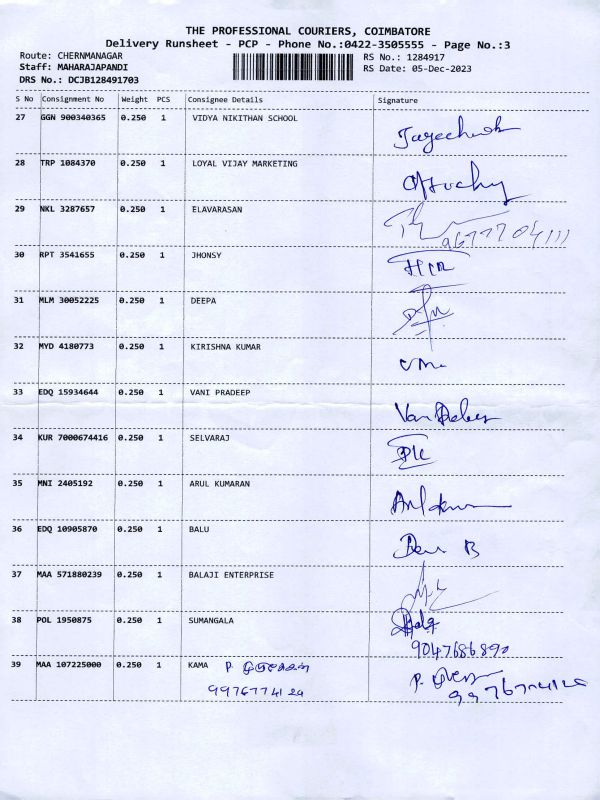 THE PROFESSIONAL COURIERS, COIMBATORE
Delivery Runsheet - PCP - Phone No.:0422-3505555 - Page No.:3
Route: CHERNMANAGAR RS No.: 1284917
Staff: MAHARAJAPANDI RS Date: 05-Dec-2023
DRS No.: DCJB128491703
S No Consignment No Weight PCS Consignee Details Signature
27 GGN 900340365 0.250 1 VIDYA NIKITHAN SCHOOL
28 TRP 1084370 0.250 1 LOYAL VIJAY MARKETING
29 NKL 3287657 0.250 1 ELAVARASAN
30 RPT 3541655 0.250 1 JHONSY
31 MLM 30052225 0.250 1 DEEPA
32 MYD 4180773 0.250 1 KIRISHNA KUMAR
33 EDQ 15934644 0.250 1 VANI PRADEEP
34 KUR 7000674416 0.250 1 SELVARAJ
35 MNI 2405192 0.250 1 ARUL KUMARAN
36 EDQ 10905870 0.250 1 BALU
37 MAA 571880239 0.250 1 BALAJI ENTERPRISE
38 POL 1950875 0.250 1 SUMANGALA
9047686890
39 MAA 107225000 0.250 1 KAMA P.